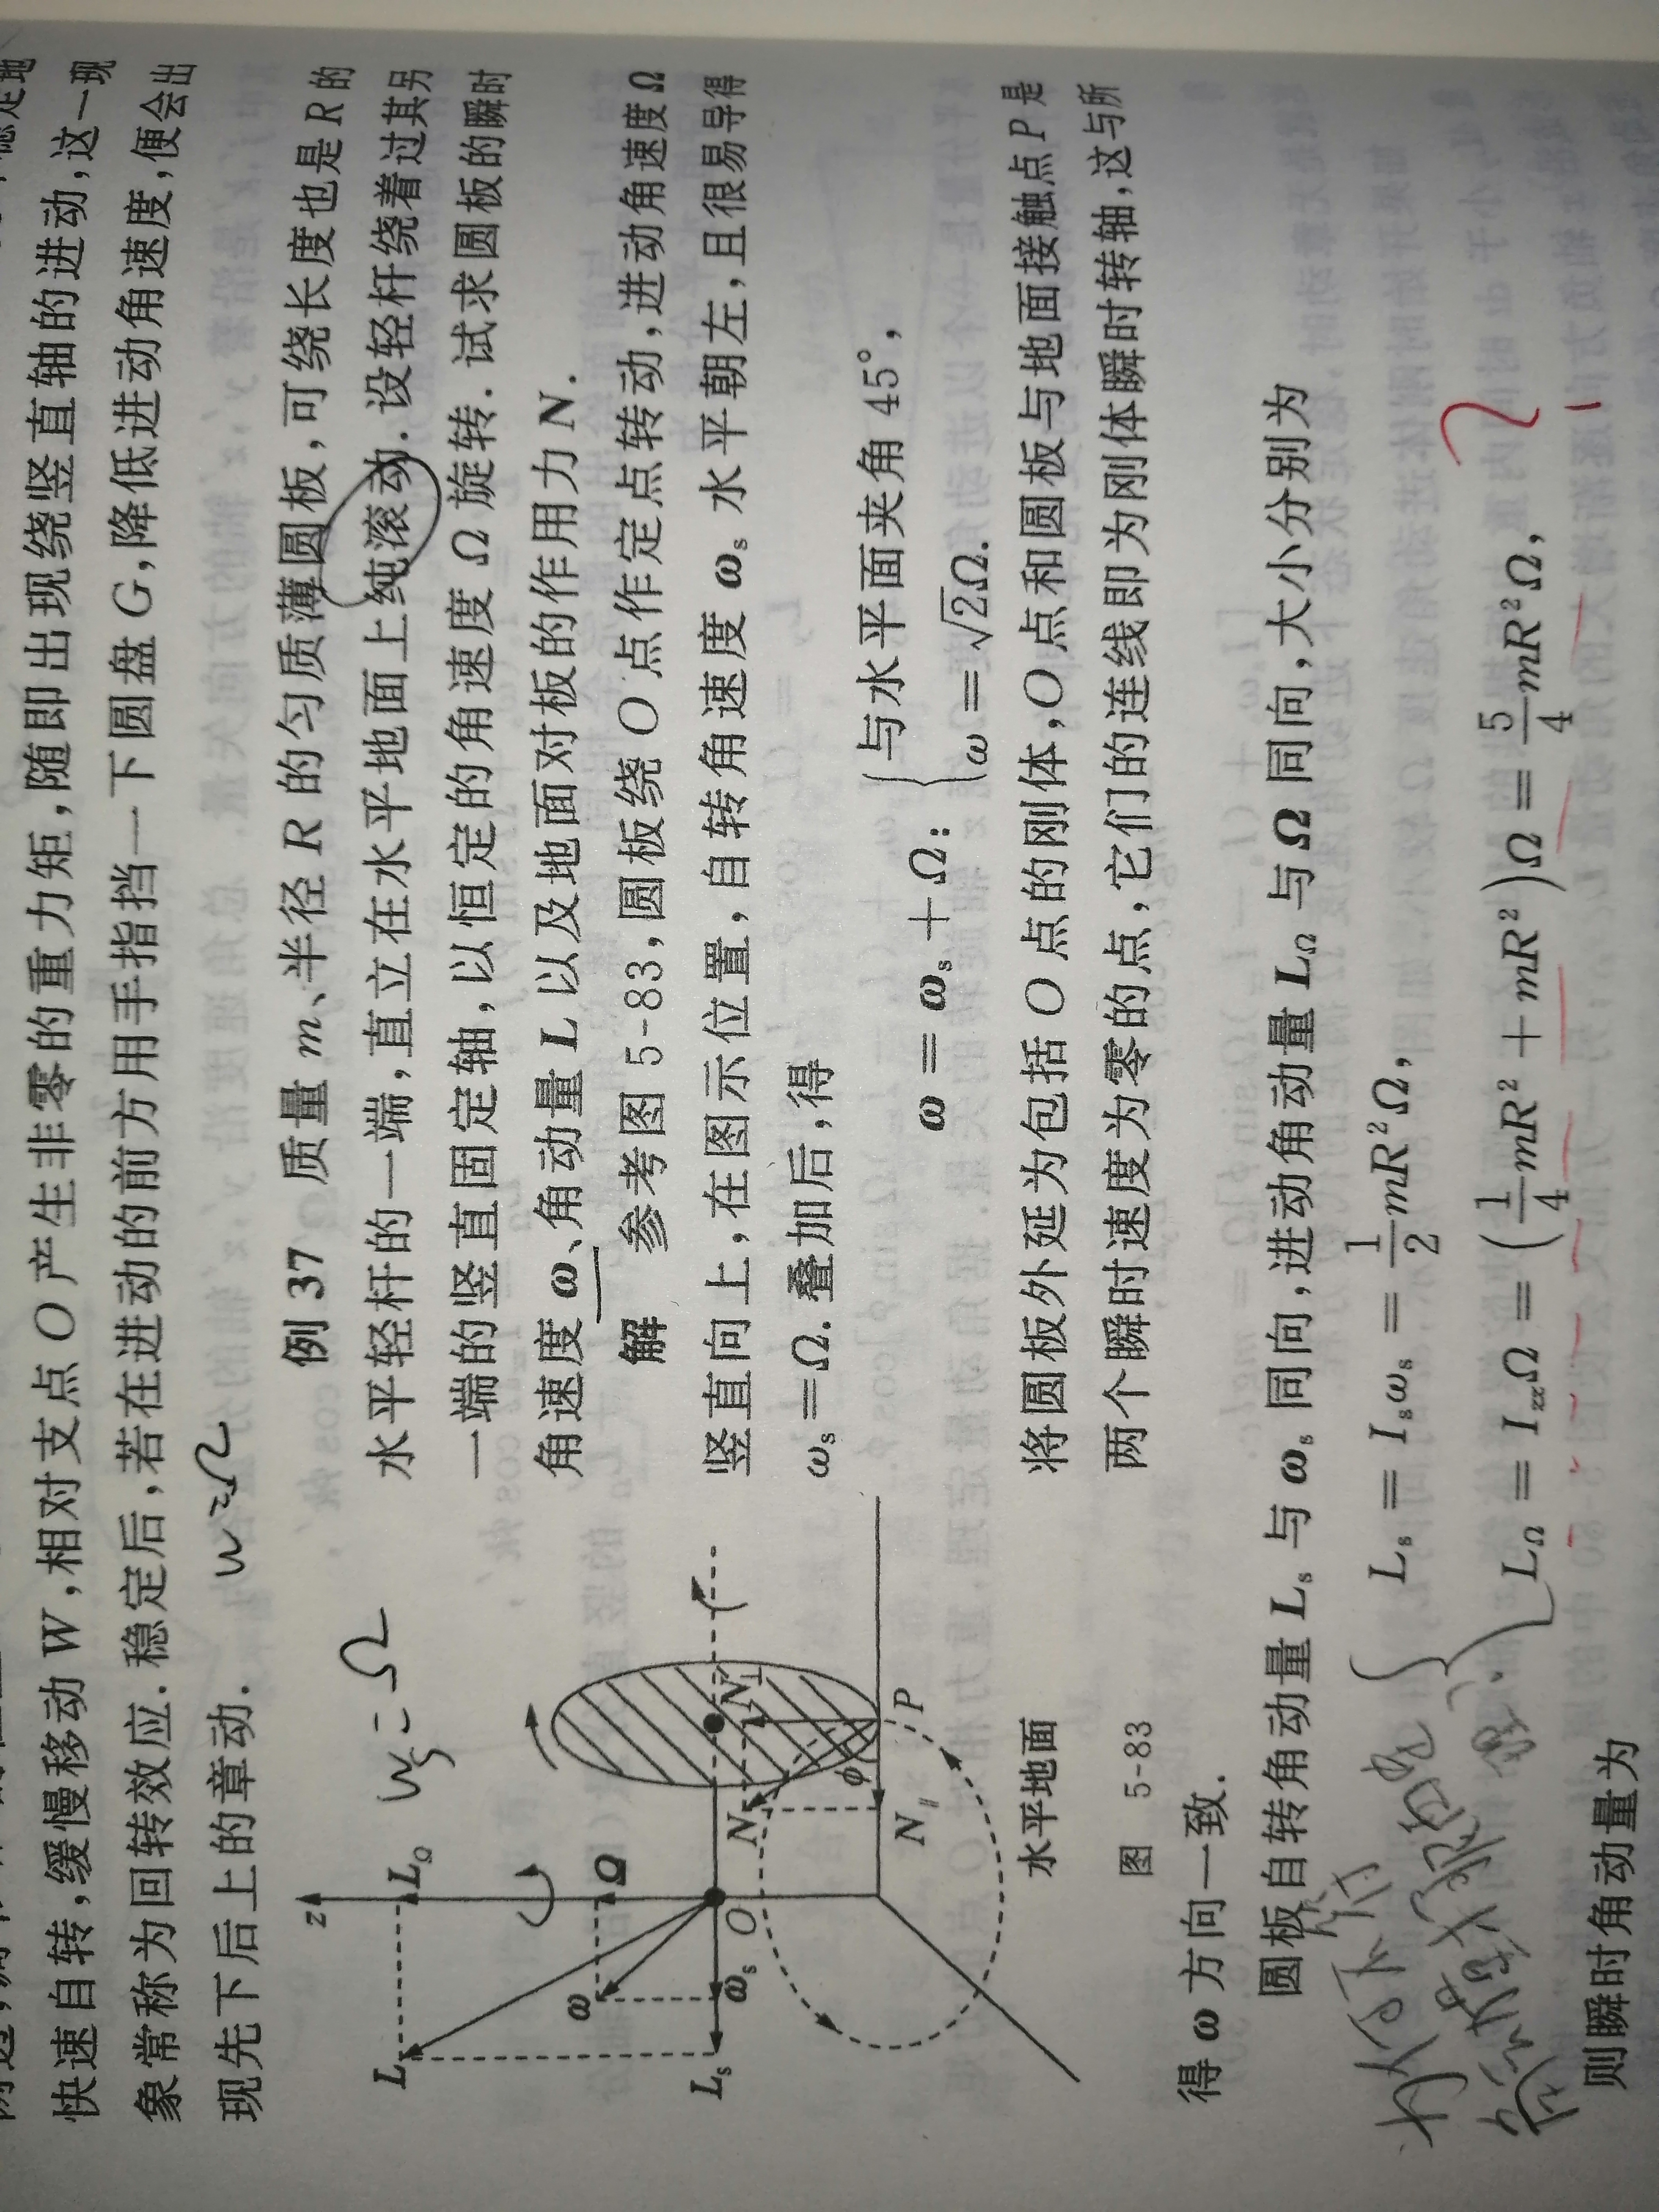 快速自转,缓慢移动 W,相对支点 O 产生非零的重力矩,随即出现绕竖直轴的进动,这一现
象常称为回转效应.稳定后,若在进动的前方用手指挡一下圆盘 G,降低进动角速度,便会出
现先下后上的章动.
w=Ω
例 37 质量 m、半径 R 的匀质薄圆板,可绕长度也是 R 的
水平轻杆的一端,直立在水平地面上纯滚动.设轻杆绕着过其另
一端的竖直固定轴,以恒定的角速度 Ω 旋转.试求圆板的瞬时
角速度 ω、角动量 L 以及地面对板的作用力 N.
解 参考图 5-83,圆板绕 O 点作定点转动,进动角速度 Ω
竖直向上,在图示位置,自转角速度 ωs 水平朝左,且很易导得
ωs=Ω.叠加后,得
ω = ωs + Ω: { 与水平面夹角 45°,
ω = √2Ω.
将圆板外延为包括 O 点的刚体,O 点和圆板与地面接触点 P 是
两个瞬时速度为零的点,它们的连线即为刚体瞬时转轴,这与所
ws=Ω
z
LΩ
L
Ω
ω
Ls
ωs
O
N
N⊥
φ
N∥
P
水平地面
图 5-83
得 ω 方向一致.
圆板自转角动量 Ls 与 ωs 同向,进动角动量 LΩ 与 Ω 同向,大小分别为
Ls = Isωs = 1/2 mR²Ω,
LΩ = IzzΩ = (1/4 mR² + mR²)Ω = 5/4 mR²Ω,
则瞬时角动量为